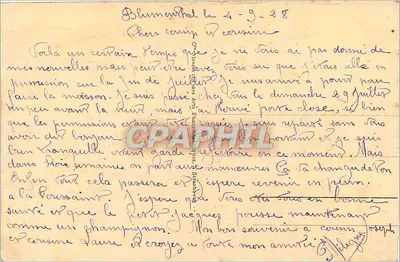 Blumenthal le 4-9-28
Chers cousin et cousine
Voilà un certain temps que je ne vous ai pas donné de
mes nouvelles mais peut être avez vous su que j'étais allé en
permission sur la fin de juillet je suis arrivé à point pour
faire la moisson. Je suis passé chez toi le dimanche 29 juillet
un peu avant la nuit mais j'ai trouvé porte close, si bien
que la permission étant passée je suis reparti sans vous
avoir dit bonjour
bien tranquille en ce moment. Mais
dans trois semaines on part aux manœuvres ça va changer de ton
Enfin tout cela passera et j'espère revenir en perm.
à la Toussaint. J'espère que vous êtes tous en bonne
santé et que le petit Jacques pousse maintenant
comme un champignon. Mon bon souvenir à cousin Joseph
et cousine et croyez à toute mon amitié.
CPARHIL